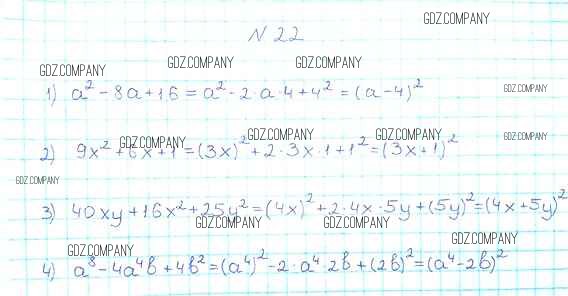 GDZ.COMPANY
N 22
GDZ.COMPANY GDZ.COMPANY GDZ.COMPANY
1) a² - 8a + 16 = a² - 2 · a · 4 + 4² = (a - 4)²
GDZ.COMPANY
GDZ.COMPANY GDZ.COMPANY GDZ.COMPANY GDZ.COMPANY
2) 9x² + 6x + 1 = (3x)² + 2 · 3x · 1 + 1² = (3x + 1)²
GDZ.COMPANY
3) 40xy + 16x² + 25y² = (4x)² + 2 · 4x · 5y + (5y)² = (4x + 5y)²
GDZ.COMPANY GDZ.COMPANY GDZ.COMPANY
GDZ.COMPANY
4) a⁸ - 4a⁴b + 4b² = (a⁴)² - 2 · a⁴ · 2b + (2b)² = (a⁴ - 2b)²